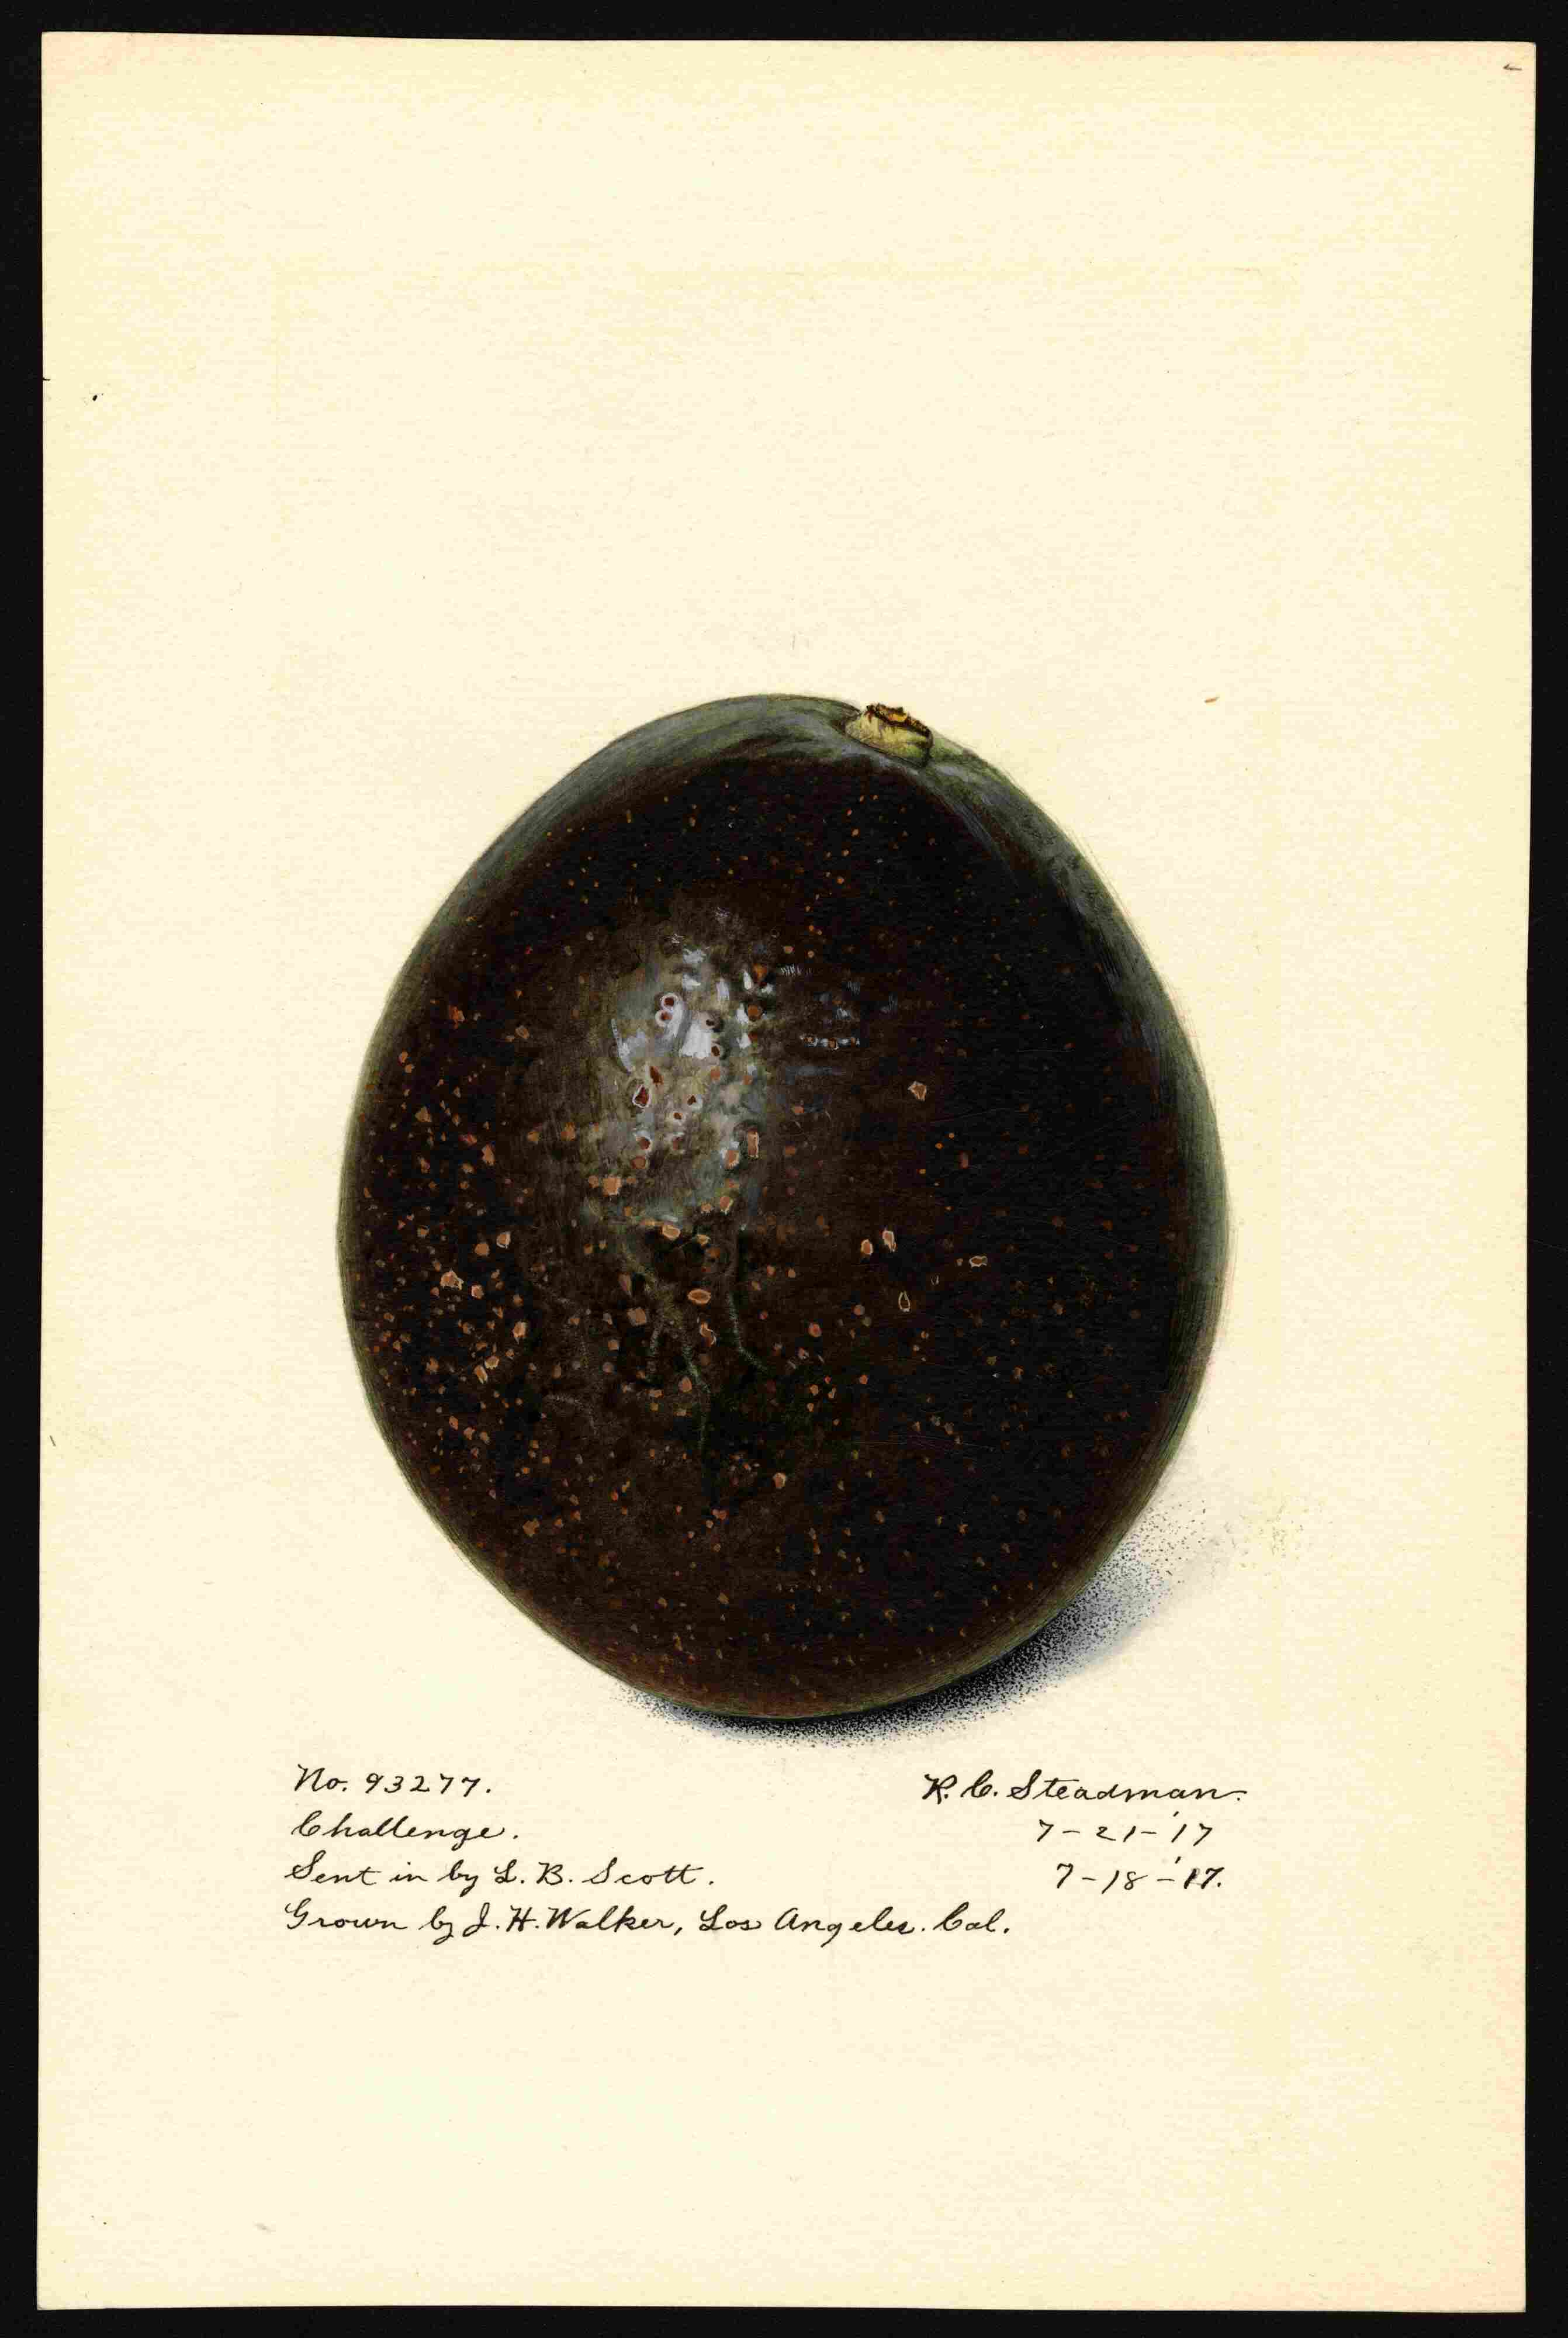 No. 93277.
Challenge.
Sent in by L. B. Scott.
Grown by J. H. Walker, Los Angeles. Cal.
R. C. Steadman.
7-21-'17
7-18-'17.